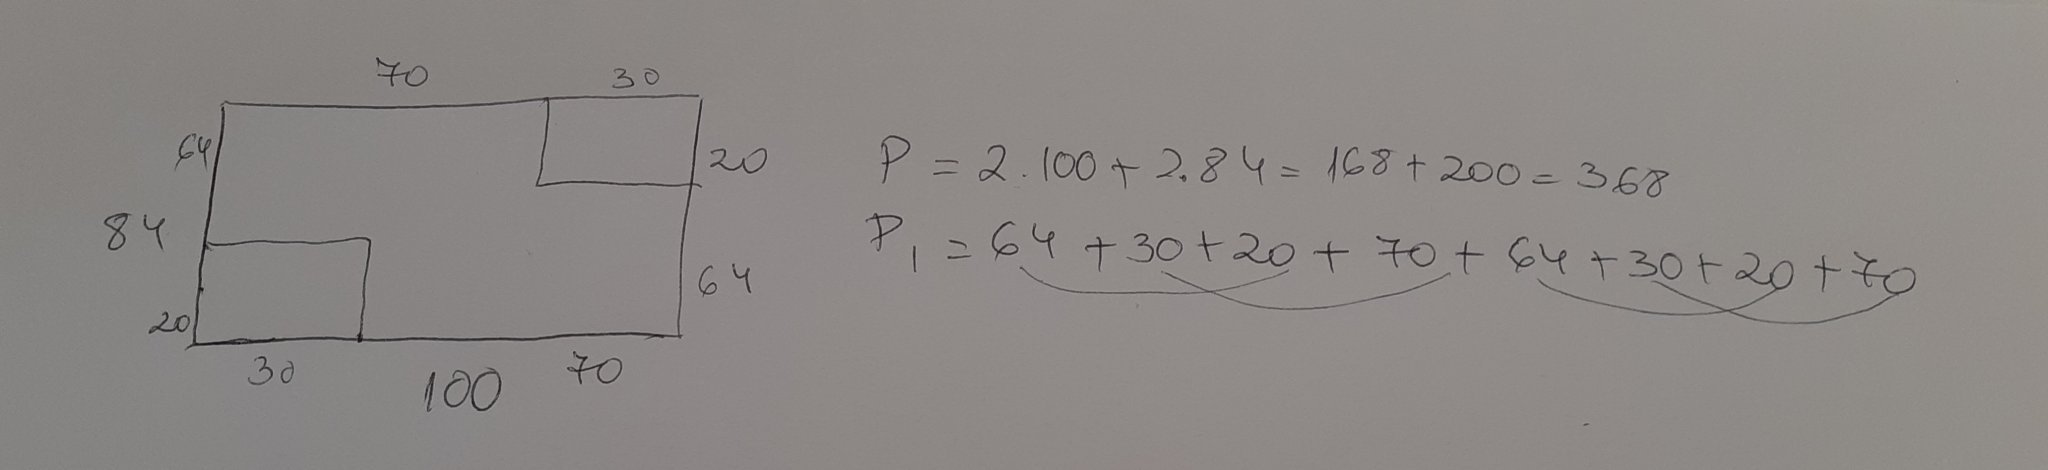 70 30
64
20
84
64
20
30 100 70
P = 2.100 + 2.84 = 168 + 200 = 368
P1 = 64 + 30 + 20 + 70 + 64 + 30 + 20 + 70